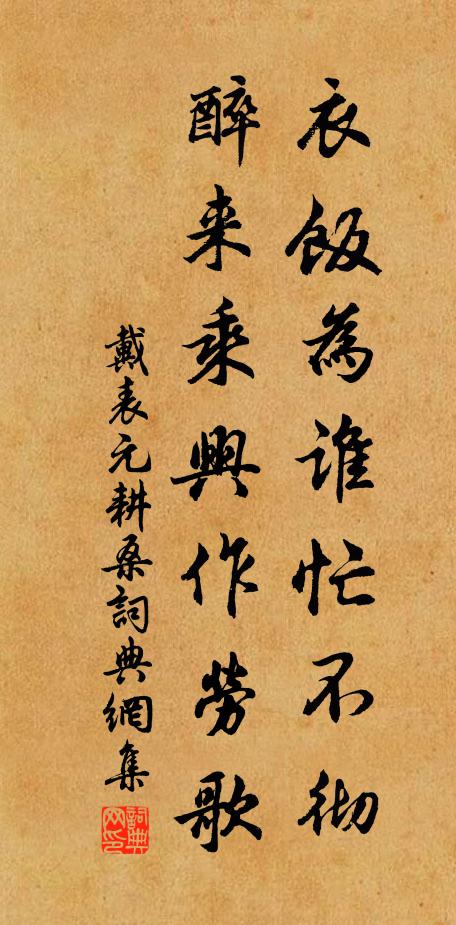 衣飯為誰忙不彻
醉来乘興作勞歌
戴表元耕桑詞典網集
詞典网印